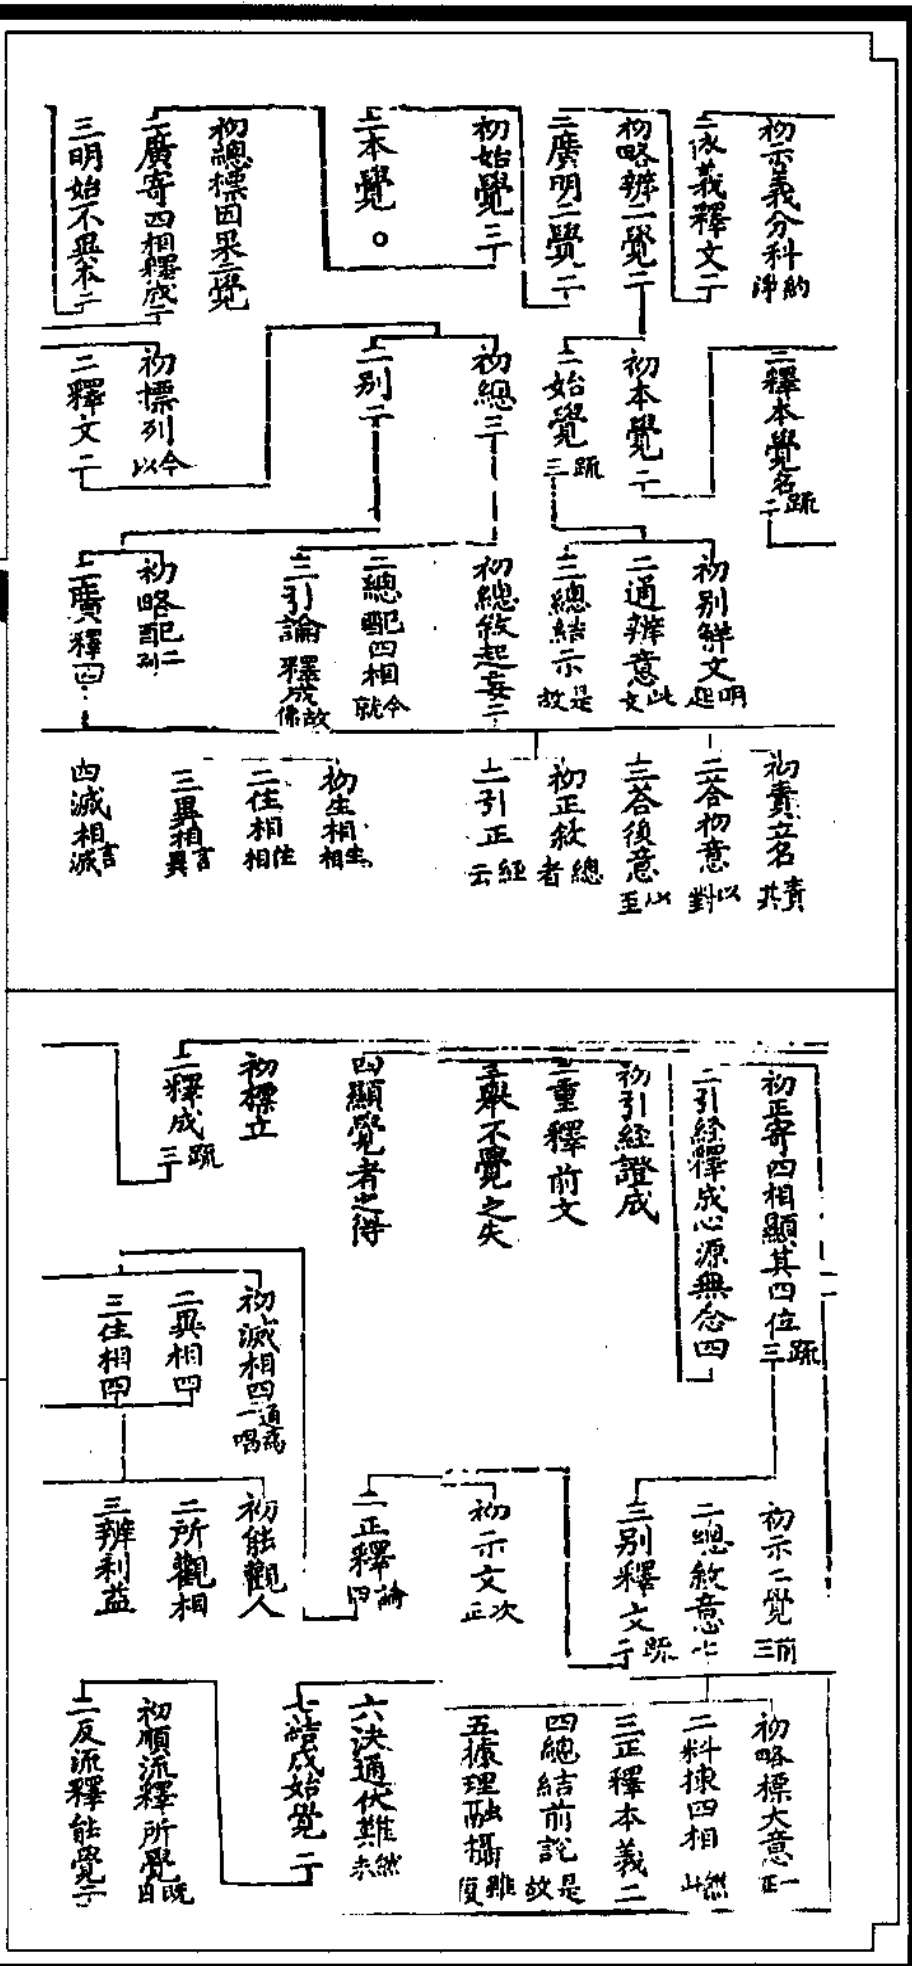 初示義分科 約淨
二依義釋文 二
初略辨二覺 二
二廣明二覺 二
初始覺 三
二本覺 ○
初總標因果二覺
二廣寄四相釋成 二
三明始不異本 二
二釋本覺名 疏二
初本覺 二
二始覺 疏三
初總 三
二別 二
初標列 今以
二釋文 二
初別解文 明起
二通辨意 此文
三總結示 是故
初總敘起妄 二
二總配四相 今就
三引論釋成 故佛
初略配 二列
二廣釋 四
初責立名 責其
二答初意 以對
三答後意 以至
初正敘 總者
二引正 經云
初生相 生相
二住相 住相
三異相 言異
四滅相 言滅
初正寄四相顯其四位 疏三
二引經釋成心源無念 四
初引經證成
二重釋前文
三舉不覺之失
四顯覺者之得
初標立
二釋成 疏三
初滅相 四
二異相 四
三住相 四
初示二覺 前三
二總敘意 七
三別釋文 疏二
初示文 次正
二正釋 論四
初能觀人
二所觀相
三辨利益
初略標大意 一正
二料揀四相 然此
三正釋本義 二
四總結前說 是故
五據理融攝 雖復
六決通伏難 然未
七結成始覺 二
初順流釋所覺 既自
二反流釋能覺 二